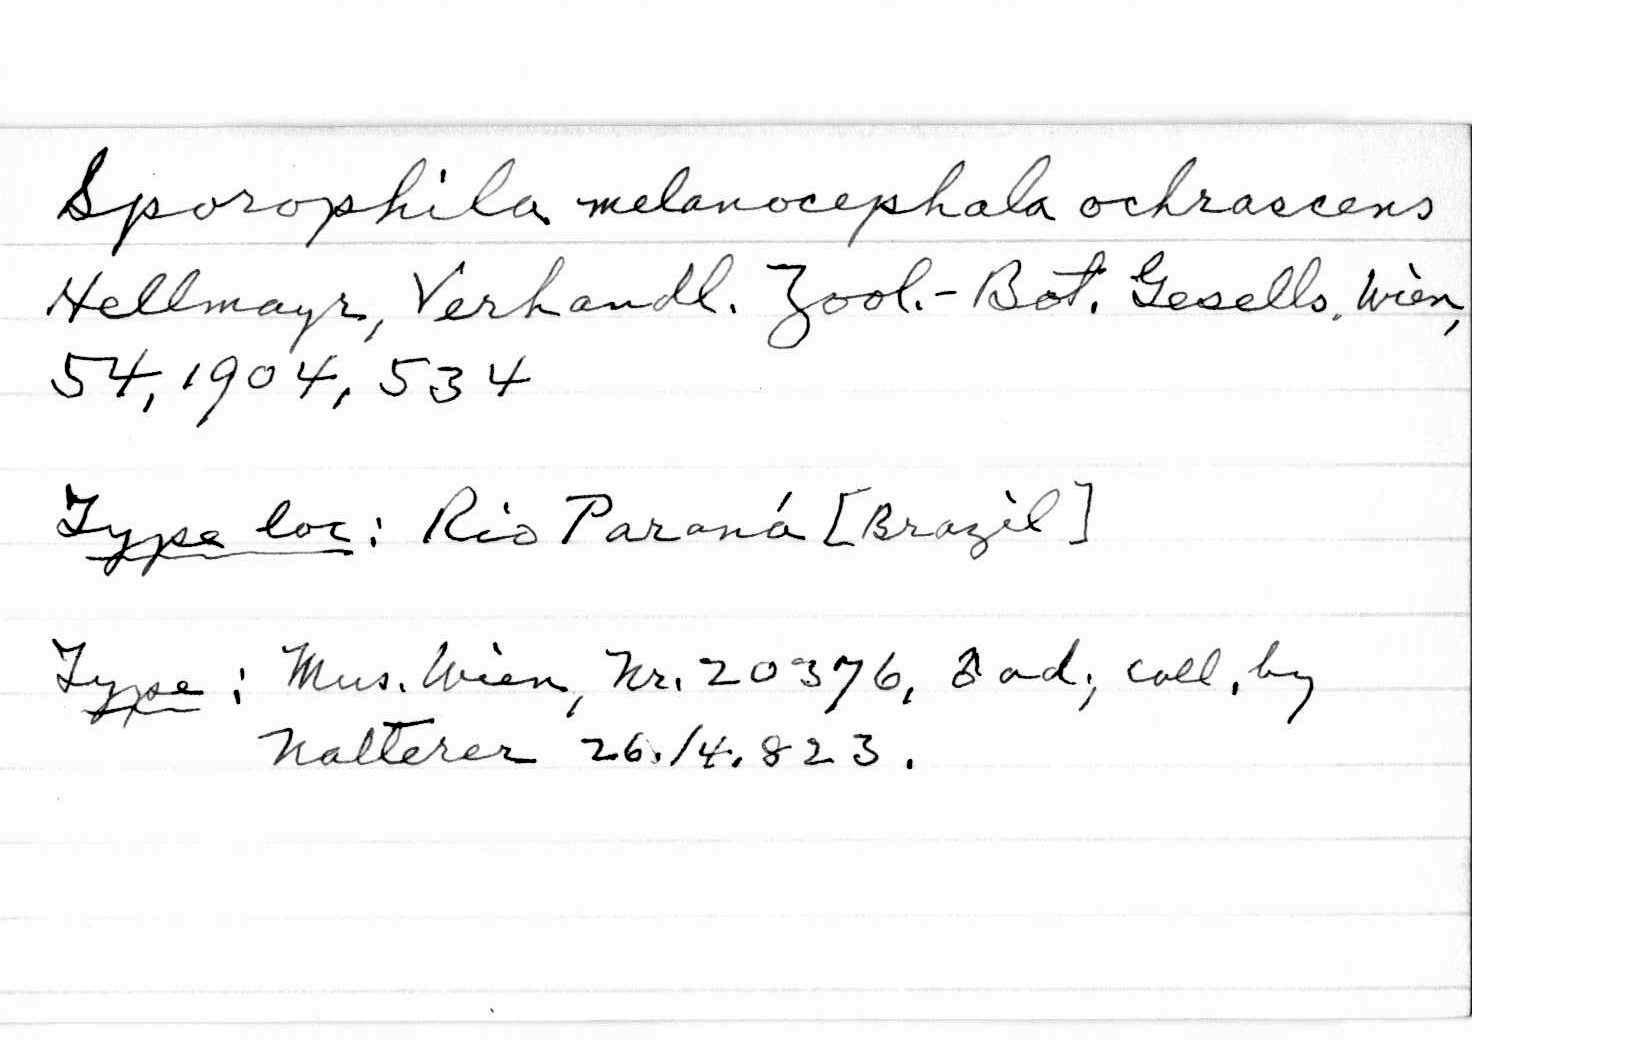 Sporophila melanocephala ochrascens
Hellmayr, Verhandl. Zool.-Bot. Gesells. Wien,
54, 1904, 534
Type loc: Rio Paraná [Brazil]
Type: Mus. Wien, Nr. 20376, ♂ ad; coll. by
Natterer 26./4.823.